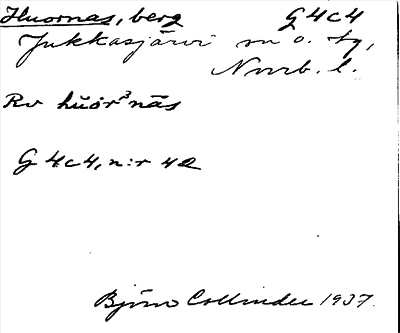 Huornas, berg G 4 c 4
Jukkasjärvi sn o. tg,
Norrb. l.
Rv hŭör³năs
G 4c4, n:r 42
Björn Collinder 1937.